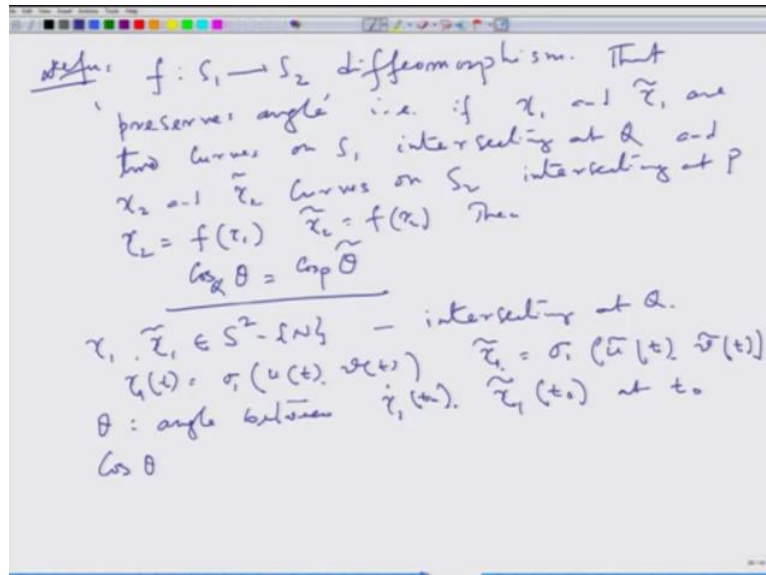 defn: f : S₁ → S₂ diffeomorphism. That
'preserves angle' i.e. if γ₁ and γ̃₁ are
two curves on S₁ intersecting at Q and
γ₂ and γ̃₂ curves on S₂ intersecting at P
γ₂ = f(γ₁) γ̃₂ = f(γ₁) Then
Cos_Q θ = Cos_P θ̃
γ₁, γ̃₁ ∈ S² - {N} — intersecting at Q.
γ₁(t) = σ₁(u(t), v(t)) γ̃₁ = σ₁(ũ(t), ṽ(t))
θ : angle between γ̇₁(t₀), γ̃₁(t₀) at t₀
Cos θ